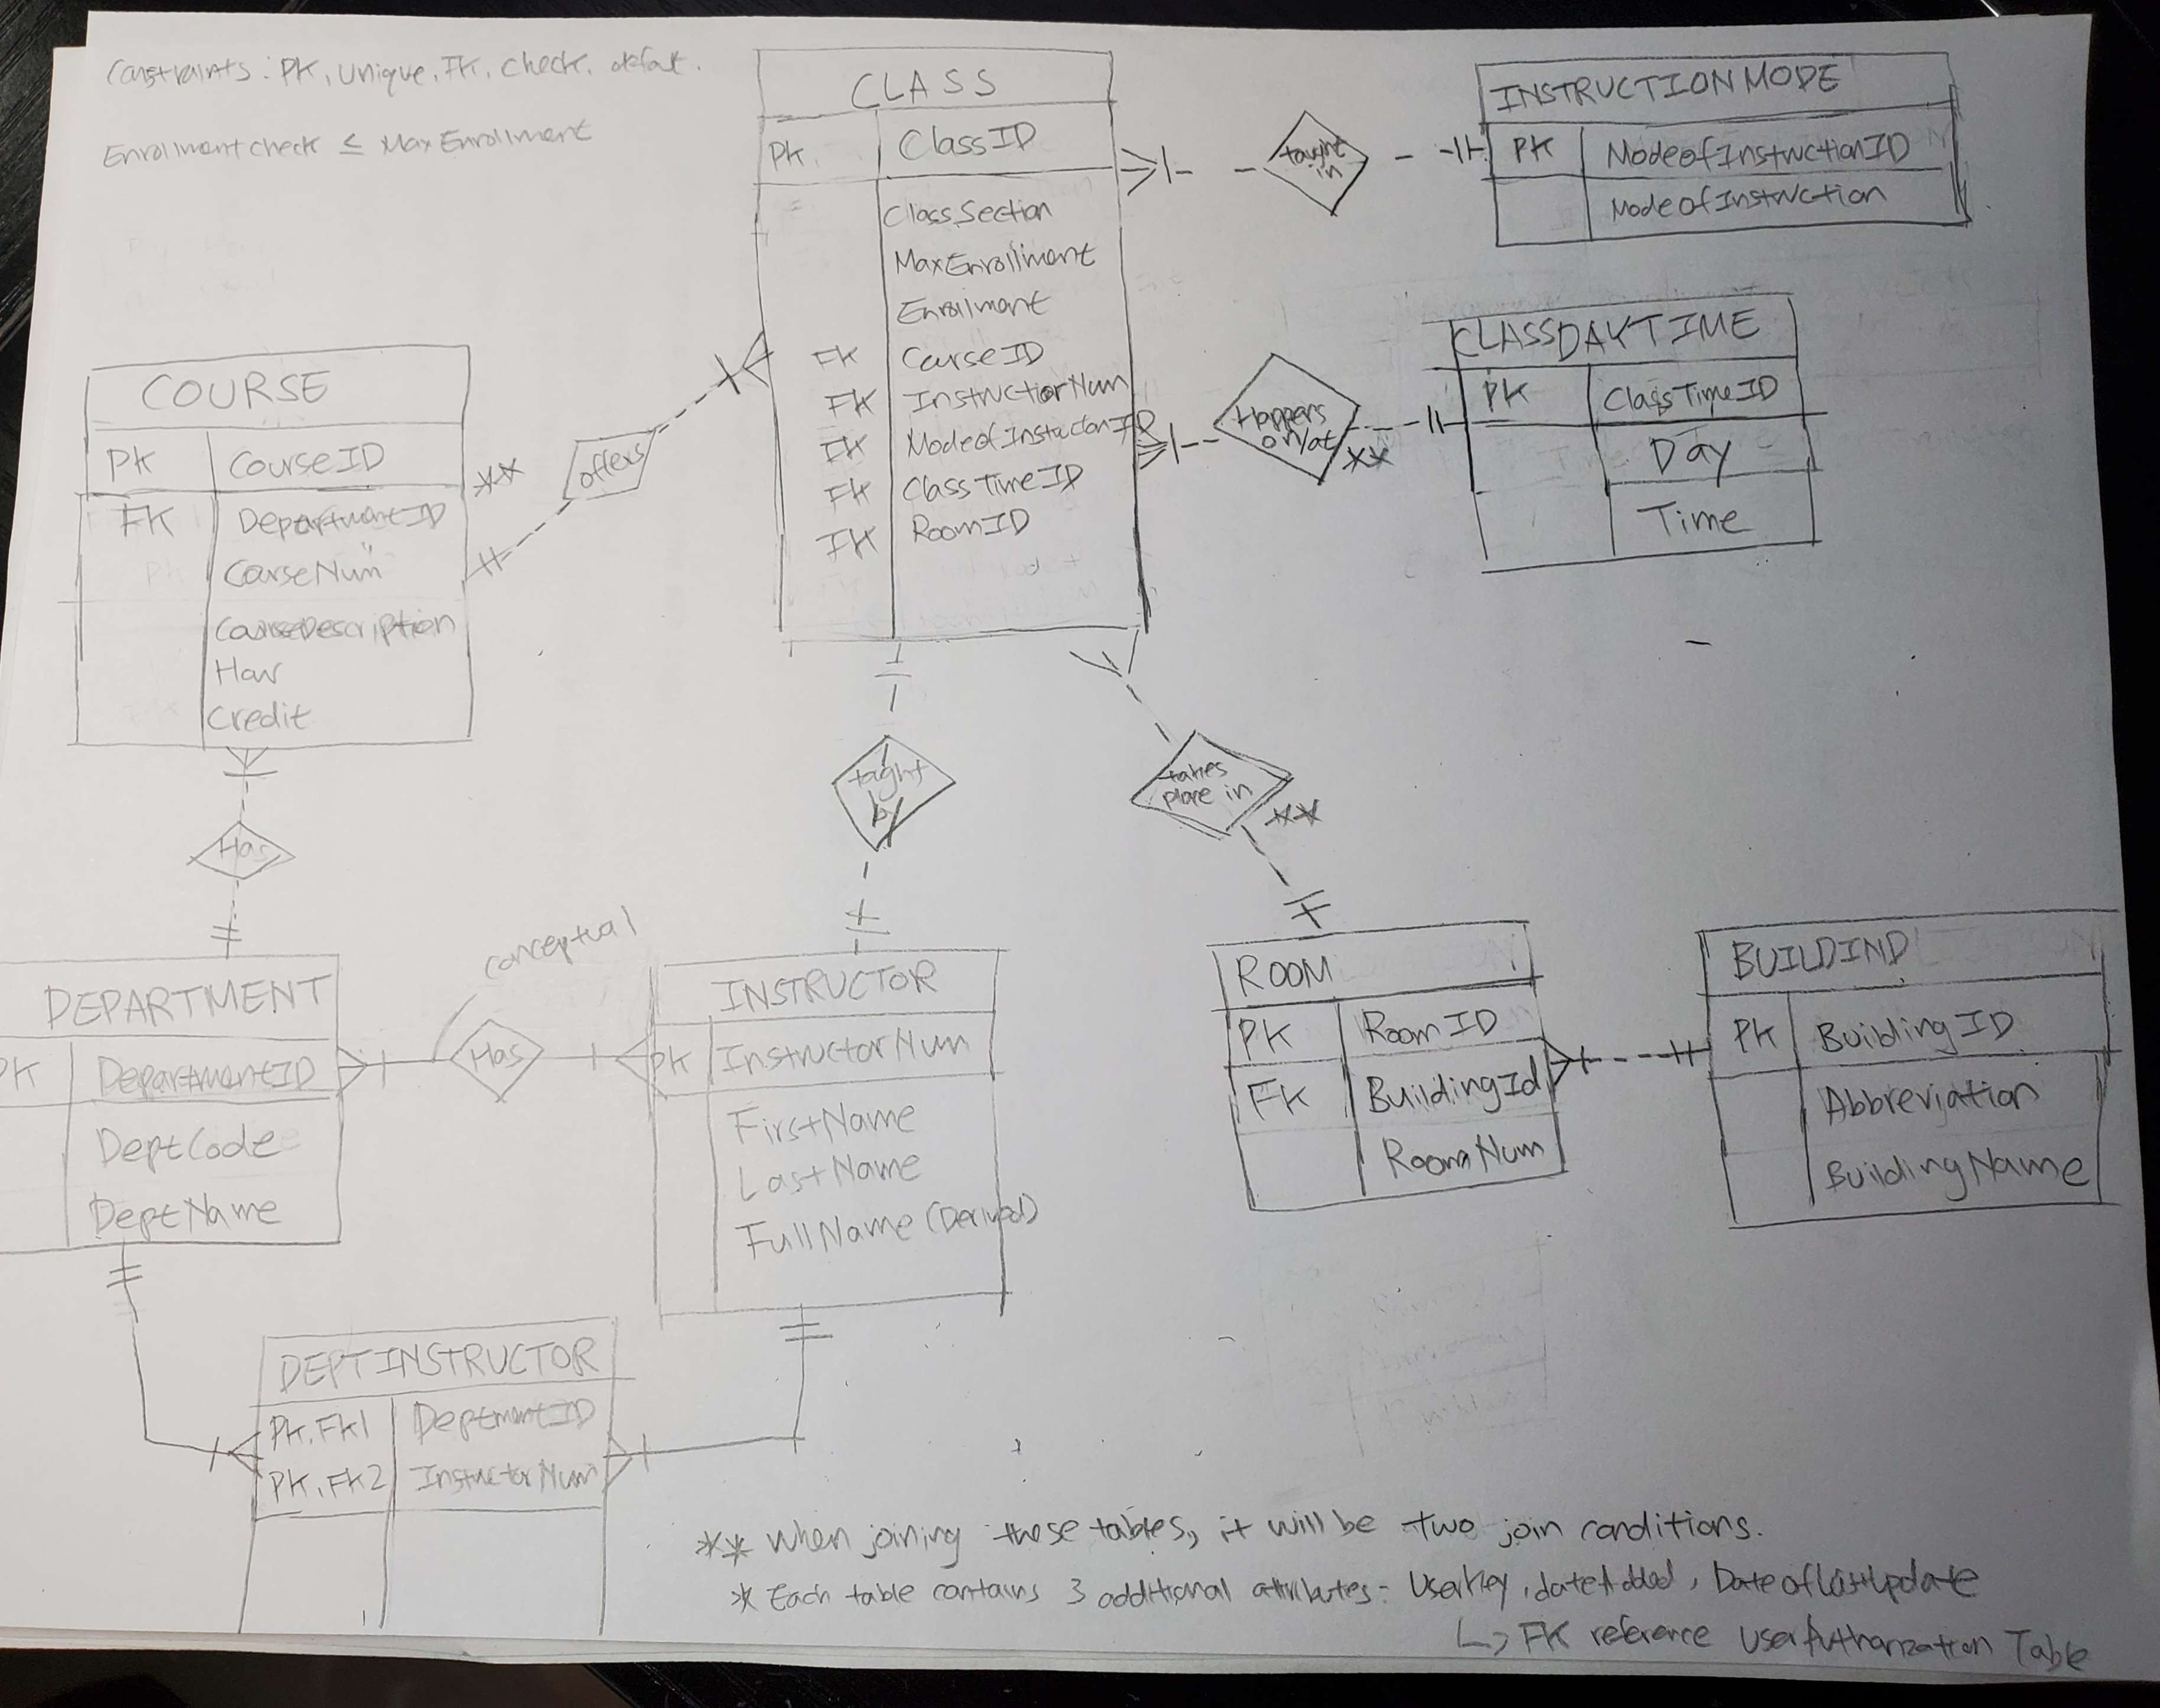 Constraints: PK, Unique, FK, Check, defaut.
Enrollmentcheck ≤ MaxEnrollment
CLASS
PK ClassID
ClassSection
MaxEnrollment
Enrollment
FK CourseID
FK InstructorNum
FK ModeofInstructionID
FK ClassTimeID
FK RoomID
taught
in
INSTRUCTIONMODE
PK ModeofInstructionID
ModeofInstruction
Happens
on/at
**
CLASSDAYTIME
PK ClassTimeID
Day
Time
COURSE
PK CourseID
FK DepartmentID
CourseNum
CourseDescription
Credit
**
offers
Has
taght
by
takes
place in
**
conceptual
DEPARTMENT
PK DepartmentID
DeptCode
DeptName
Has
INSTRUCTOR
PK InstructorNum
FirstName
LastName
FullName (Derived)
ROOM
PK RoomID
FK BuildingId
RoomNum
BUILDIND
PK BuildingID
Abbreviation
BuildingName
DEPTINSTRUCTOR
PK,FK1 DeptmentID
PK,FK2 InstuctorNum
** When joining these tables, it will be two join conditions.
* Each table contains 3 additional attributes: UserKey, dateAdded, DateofLastUpdate
↳ FK reference UserAuthorization Table